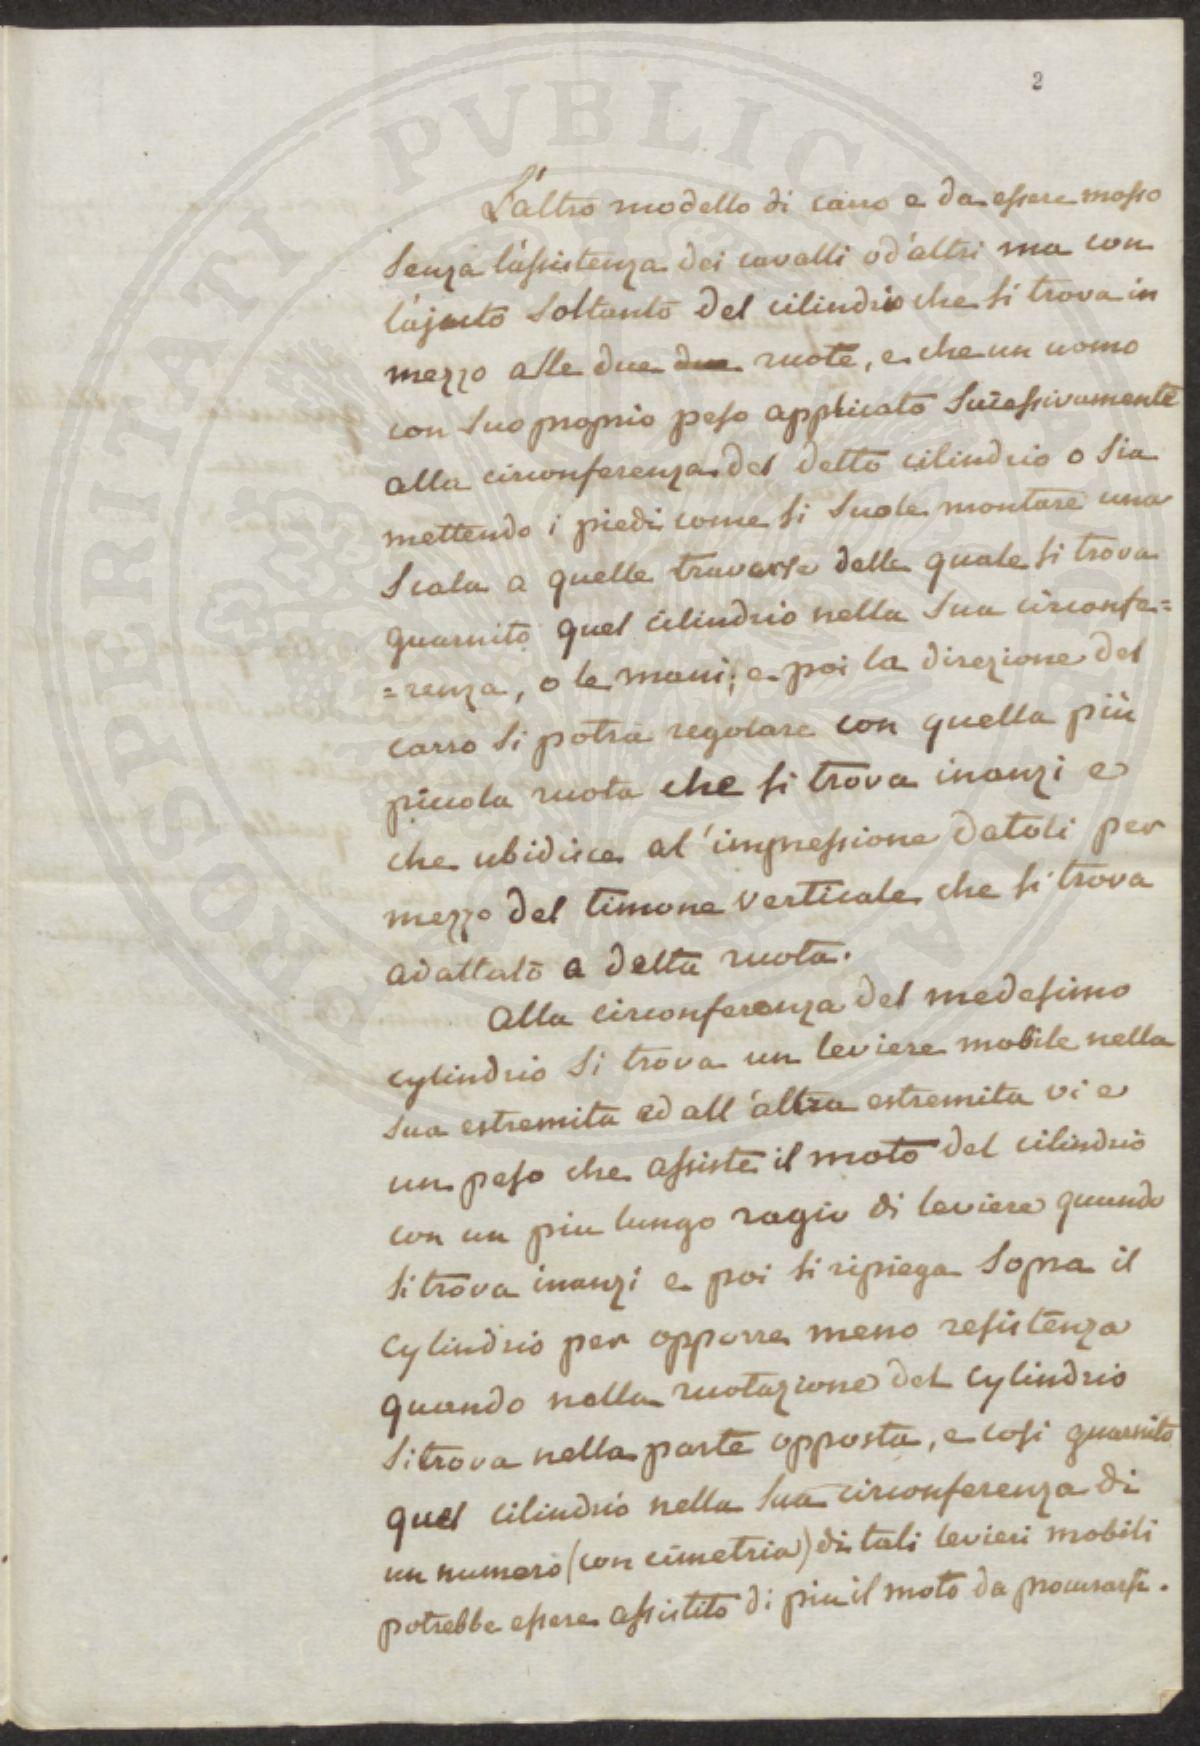 2
L'altro modello di carro e da essere mosso
senza l'assistenza dei cavalli od'altri ma con
l'ajuto soltanto del cilindrio che si trova in
mezzo alle due due ruote, e che un uomo
con suo proprio peso applicato successivamente
alla circonferenza del detto cilindrio o sia
mettendo i piedi come si suole montare una
scala a quelle traverse delle quale si trova
guarnito quel cilindrio nella sua circonfe=
=renza, o le mani; e poi la direzione del
carro si potra regolare con quella più
piccola ruota che si trova inanzi e
che ubidisce al'impressione datoli per
mezzo del timone verticale che si trova
adattato a detta ruota.
Alla circonferenza del medesimo
cylindrio si trova un leviere mobile nella
sua estremita ed all'altra estremita vi e
un peso che assiste il moto del cilindrio
con un piu lungo ragio di leviere quando
si trova inanzi e poi si ripiega sopra il
cylindrio per opporre meno resistenza
quando nella ruotazione del cylindrio
si trova nella parte opposta, e cosi guarnito
quel cilindrio nella sua circonferenza di
un numero (con cimetria) di tali levieri mobili
potrebbe essere assistito di piu il moto da procurarsi.
PROSPERITATI PVBLICAE